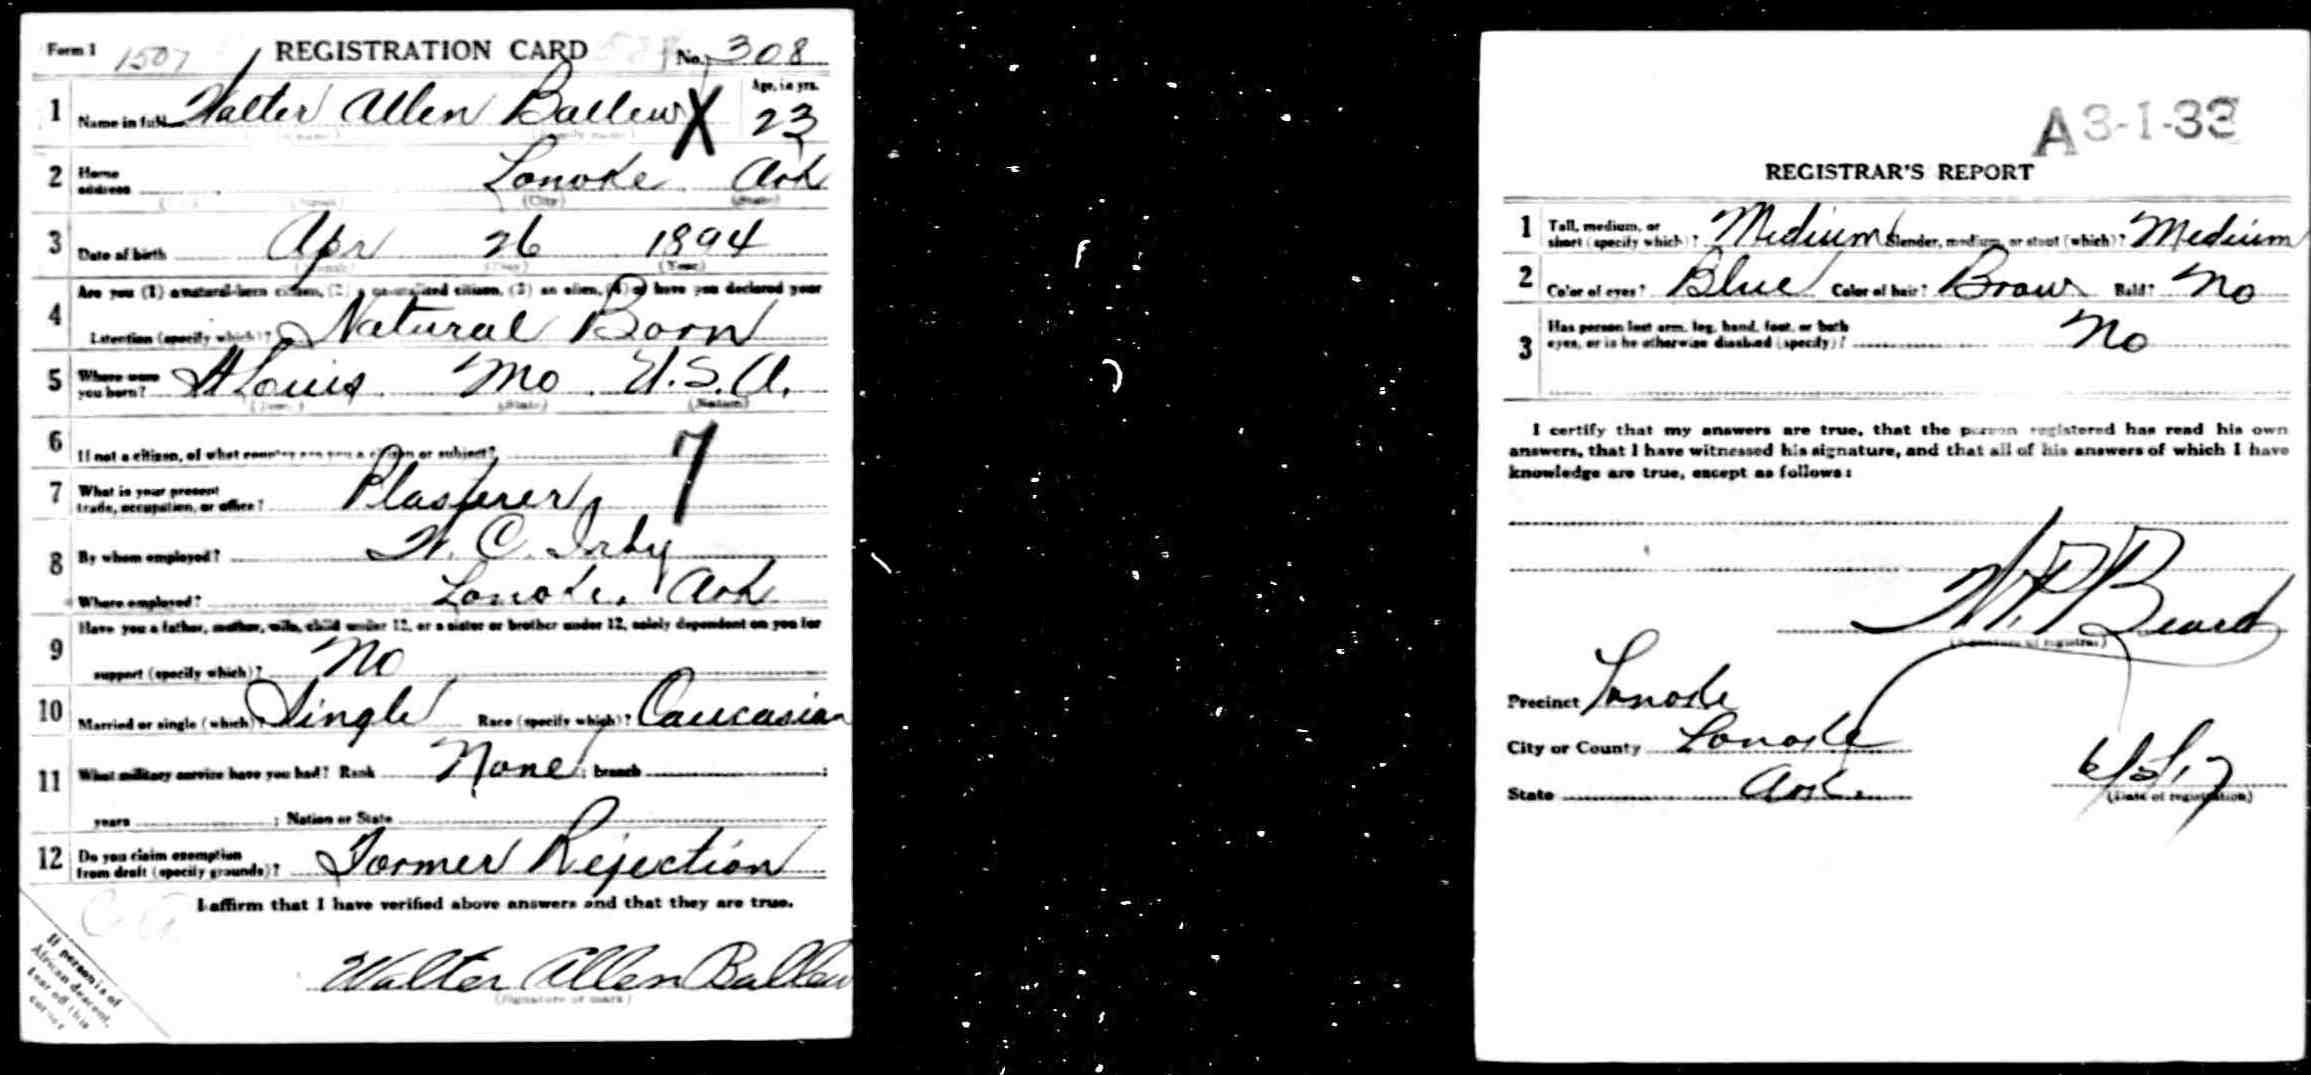 Form 1 1507 REGISTRATION CARD No. 308
1 Name in full Walter Allen Ballew X Age, in yrs. 23
(family name)
2 Home address Lonoke Ark
(City) (State)
3 Date of birth Apr 26 1894
(Month) (Day) (Year)
4 Are you (1) a natural-born citizen, (2) a naturalized citizen, (3) an alien, (4) or have you declared your
intention (specify which)? Natural Born
5 Where were you born? St Louis Mo U.S.A.
(Town) (State) (Nation)
6 If not a citizen, of what country are you a citizen or subject?
7 What is your present trade, occupation, or office? Plasterer
8 By whom employed? W. C. Irby
Where employed? Lonoke, Ark
9 Have you a father, mother, wife, child under 12, or a sister or brother under 12, solely dependent on you for
support (specify which)? No
10 Married or single (which)? Single Race (specify which)? Caucasian
11 What military service have you had? Rank None ; branch ;
years ; Nation or State
12 Do you claim exemption from draft (specify grounds)? Former Rejection
I affirm that I have verified above answers and that they are true.
Walter Allen Ballew
(Signature or mark)
If person is of
African descent,
tear off this
corner
A 3-1-33
REGISTRAR'S REPORT
1 Tall, medium, or short (specify which)? Medium Slender, medium, or stout (which)? Medium
2 Color of eyes? Blue Color of hair? Brown Bald? No
3 Has person lost arm, leg, hand, foot, or both
eyes, or is he otherwise disabled (specify)? No
I certify that my answers are true, that the person registered has read his own
answers, that I have witnessed his signature, and that all of his answers of which I have
knowledge are true, except as follows:
W. P. Beard
(Signature of registrar)
Precinct Lonoke
City or County Lonoke
State Ark. 6/5/17
(Date of registration)